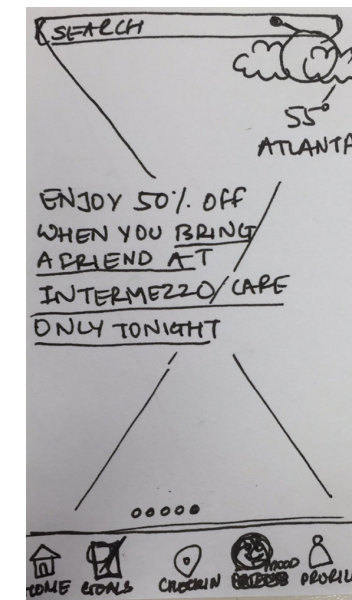 SEARCH
55°
ATLANTA
ENJOY 50% OFF
WHEN YOU BRING
A FRIEND AT
INTERMEZZO CAFE
ONLY TONIGHT
HOME GOALS CHECKIN MOOD PROFIL